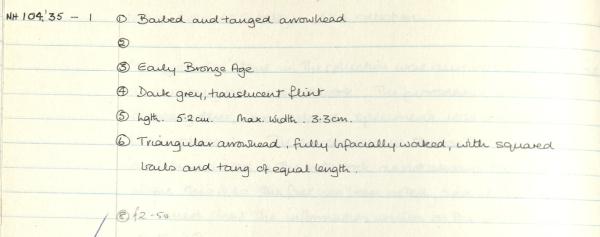 NH 104,'35 - 1 ① Barbed and tanged arrowhead
②
③ Early Bronze Age
④ Dark grey, translucent flint
⑤ Lgth. 5.2cm. Max. Width. 3.3cm.
⑥ Triangular arrowhead, fully bifacially worked, with squared
barbs and tang of equal length.
⑧ £2-50